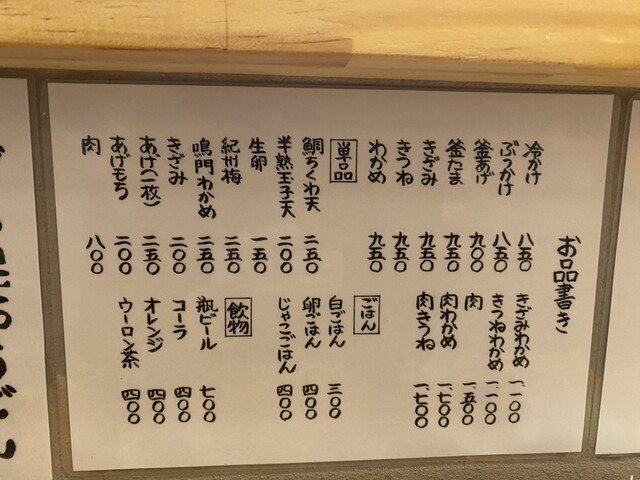 お品書き
冷かけ 八五〇
ぶっかけ 八五〇
釜あげ 九〇〇
釜たま 九五〇
きざみ 九五〇
きつね 九五〇
わかめ 九五〇
単品
鯛ちくわ天 二五〇
半熟玉子天 二〇〇
生卵 一五〇
紀州梅 二五〇
鳴門わかめ 二五〇
きざみ 二〇〇
あげ(一枚) 二五〇
あげもち 二〇〇
肉 八〇〇
きざみわかめ 一、一〇〇
きつねわかめ 一、一〇〇
肉 一、五〇〇
肉わかめ 一、七〇〇
肉きつね 一、七〇〇
ごはん
白ごはん 三〇〇
卵ごはん 四〇〇
じゃこごはん 四〇〇
飲物
瓶ビール 七〇〇
コーラ 四〇〇
オレンジ 四〇〇
ウーロン茶 四〇〇